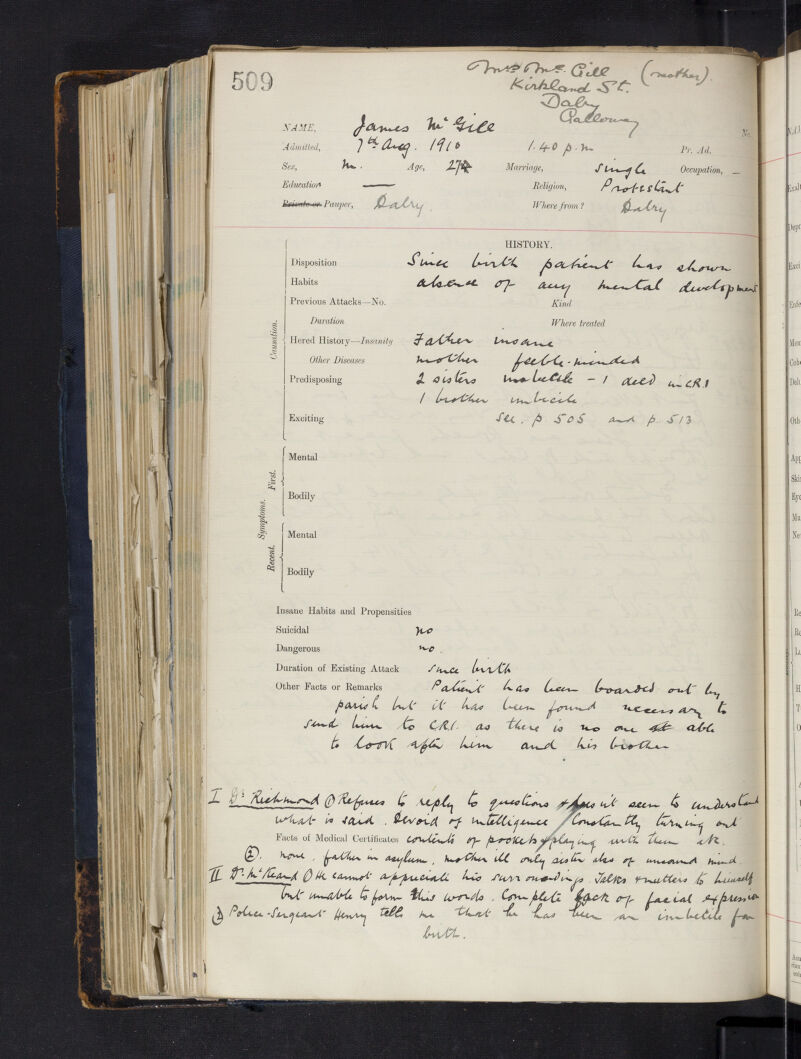 509
Mrs Mc Gill (mother).
Kirkland St.
Dalry
Galloway
NAME, James Mc Gill No.
Admitted, 7th Aug. 1910 1.40 p.m Pr. Ad.
Sex, M. Age, 27 Marriage, Single Occupation, —
Education — Religion, Protestant
Private or Pauper, Dalry. Where from? Dalry
HISTORY.
Causation.
Disposition Since birth patient has shown
Habits absence of any mental development
Previous Attacks—No. Kind
Duration Where treated
Hered History—Insanity Father insane
Other Diseases mother feeble-minded
Predisposing 2 sisters imbecile – 1 died in CRI
1 brother imbecile
Exciting See. p 505 and p. 513
Symptoms.
First.
Mental
Bodily
Recent.
Mental
Bodily
Insane Habits and Propensities
Suicidal no
Dangerous no.
Duration of Existing Attack since birth
Other Facts or Remarks Patient has been boarded out by
parish but it has been found necessary to
send him to C.R.I. as there is no one able
to look after him and his brother
I Dr Richmond ① Refuses to reply to questions & doesn't seem to understand
what is said. Devoid of intelligence Constantly turning out
Facts of Medical Certificates contents of pockets & playing with them etc.
②. none. father in asylum, mother ill only sister also of unsound mind.
II Dr McKeand ① He cannot appreciate his surroundings. Talks & mutters to himself
but unable to form words. Complete lack of facial expression
② Police-Sergeant Henry tells me that he has been an imbecile from
birth.